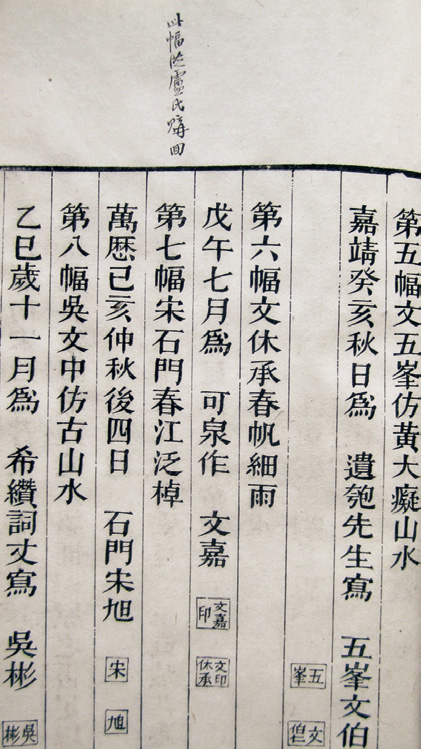 此幅從盧氏購回
第五幅文五峯仿黃大癡山水
嘉靖癸亥秋日爲　遺匏先生寫　五峯文伯
五峯
文
第六幅文休承春帆細雨
戊午七月爲　可泉作　文嘉
文嘉印
文印休承
第七幅宋石門春江泛棹
萬厯己亥仲秋後四日　石門宋旭
宋
旭
第八幅吳文中仿古山水
乙巳歲十一月爲　希纘詞丈寫　吳彬
吳彬